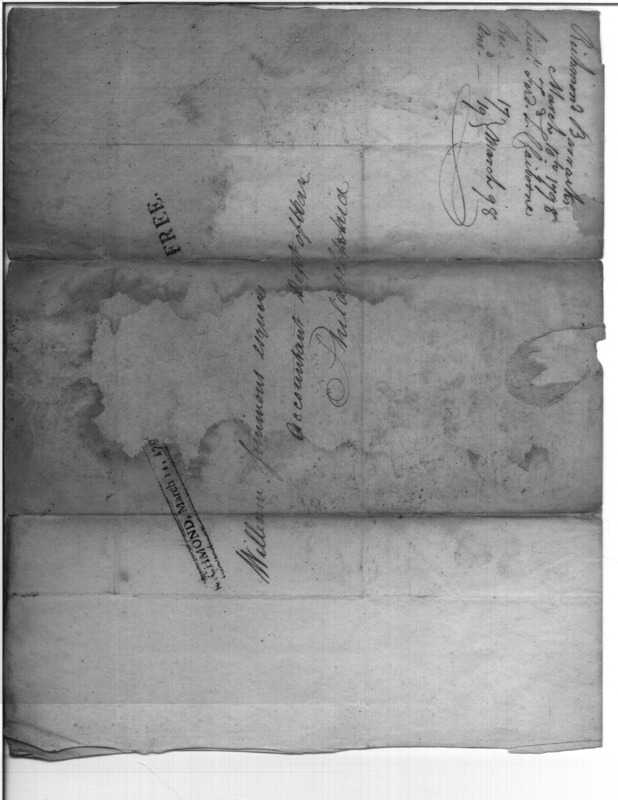 Richmond Barracks
March 10th 1798
Lieut. Ferd. L. Claiborne
Rec.d — 17 } March 98
Ans.d — 19
FREE.
William Simmons esquire
Accountant Dept of War
Philadelphia
RICHMOND, March